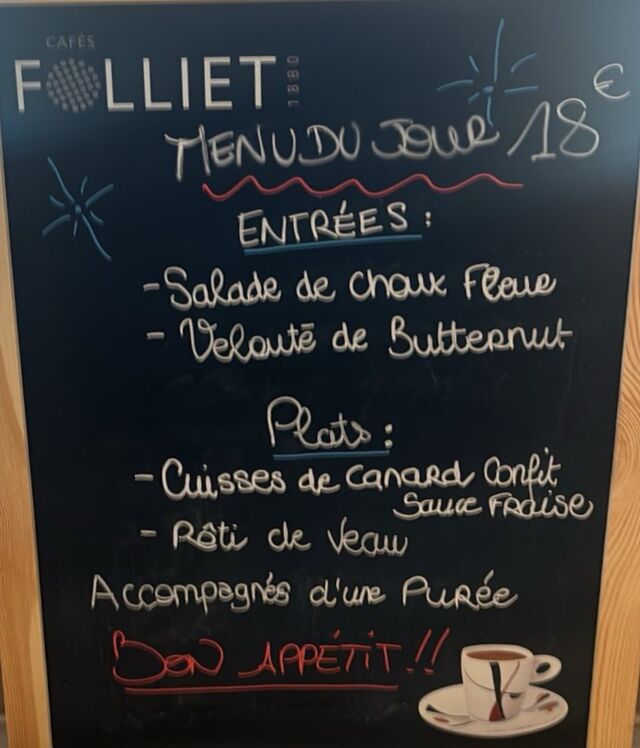 CAFÉS
FOLLIET
1880
MENU DU JOUR 18€
ENTRÉES :
- Salade de choux Fleur
- Velouté de Butternut
Plats :
- Cuisses de Canard Confit
Sauce FRaise
- Rôti de Veau
Accompagnés d'une PURée
BON APPÉTIT !!